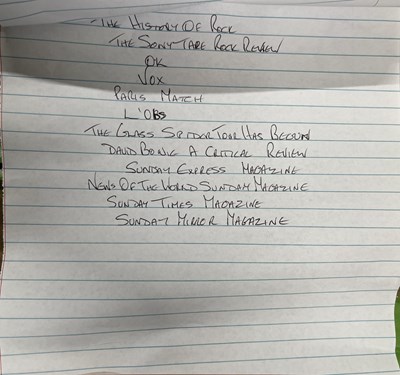 THE HISTORY OF ROCK
THE SONY TAPE ROCK REVIEW
OK
VOX
PARIS MATCH
L'OBS
THE GLASS SPIDER TOUR HAS BEGUN
DAVID BOWIE A CRITICAL REVIEW
SUNDAY EXPRESS MAGAZINE
NEWS OF THE WORLD SUNDAY MAGAZINE
SUNDAY TIMES MAGAZINE
SUNDAY MIRROR MAGAZINE